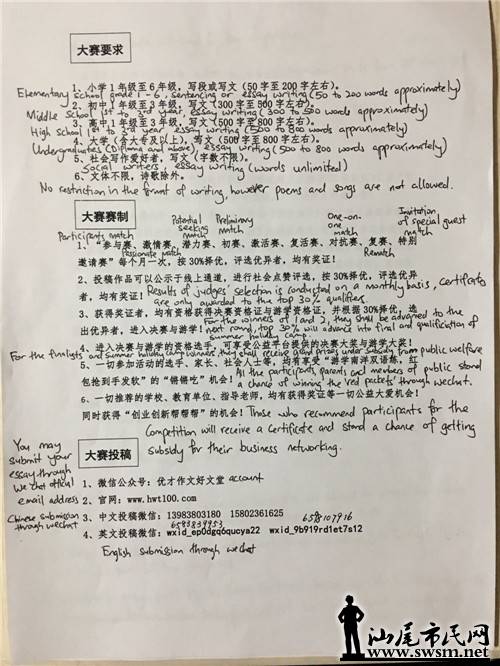 大赛要求
1、小学1年级至6年级，写段或写文（50字至200字左右）。
Elementary school grade 1-6, sentencing or essay writing (50 to 200 words approximately)
2、初中1年级至3年级，写文（300字至500字左右）。
Middle school 1st to 3rd year, essay writing (300 to 500 words approximately)
3、高中1年级至3年级，写文（500字至800字左右）。
High School 1st to 3rd year essay writing (500 to 800 words approximately)
4、大学（含大专及以上），写文（500字至800字左右）。
Undergraduates (Diploma and above), essay writing (500 to 800 approximately)
5、社会写作爱好者，写文（字数不限）。
Social writers, essay writing (words unlimited)
6、文体不限，诗歌除外。
No restriction in the format of writing, however poems and songs are not allowed.
大赛赛制
Participants match
Passionate match
Potential seeking match
Preliminary match
One-on-one match
Rematch
Invitation of special guest match
1、“参与赛、激情赛，潜力赛、初赛、激活赛、复活赛、对抗赛、复赛、特别
邀请赛”每个月一次，按30%择优，评选优异者，均有奖证！
2、投稿作品可以公示于线上通道，进行社会点赞评选，按30%择优，评选优异
者，均有奖证！
Results of judges' selection is conducted on a monthly basis, certificates
are only awarded to the top 30% qualifiers.
3、获得奖证者，均有资格获得决赛资格证与游学资格证，并根据30%择优，选
出优异者，进入决赛与游学！
For the winners of 1 and 2, they shall be advanced to the
next round, top 30% will advance into final and qualification of
summer holiday camp
4、进入决赛与游学的资格选手，可享受公益平台提供的决赛大奖与游学大奖！
For the finalists and summer holiday camp winners, they shall receive grand prizes under subsidy from public welfare
5、一切参加活动的选手、家长、社会人士等，均有享受“游学南洋双语练，红
包抢到手发软”的“锵锵吃”机会！
All the participants, parents and members of public stand
a chance of winning the red packets through wechat.
6、一切推荐的学校、教育单位、指导老师，均有获得奖证等一切公益大爱机会！
同时获得“创业创新帮帮帮”的机会！
Those who recommend participants for the
Competition will receive a certificate and stand a chance of getting
subsidy for their business networking.
大赛投稿
You may submit your essay through
1、微信公众号：优才作文好文堂
wechat official account
2、官网：www.hwt100.com
email address
3、中文投稿微信：13983803180 15802361625
Chinese submission through wechat
6583839953
658107916
4、英文投稿微信：wxid_ep0dgq6qucya22 wxid_9b919rd1et7s12
English submission through wechat
汕尾市民网
www.swsm.net